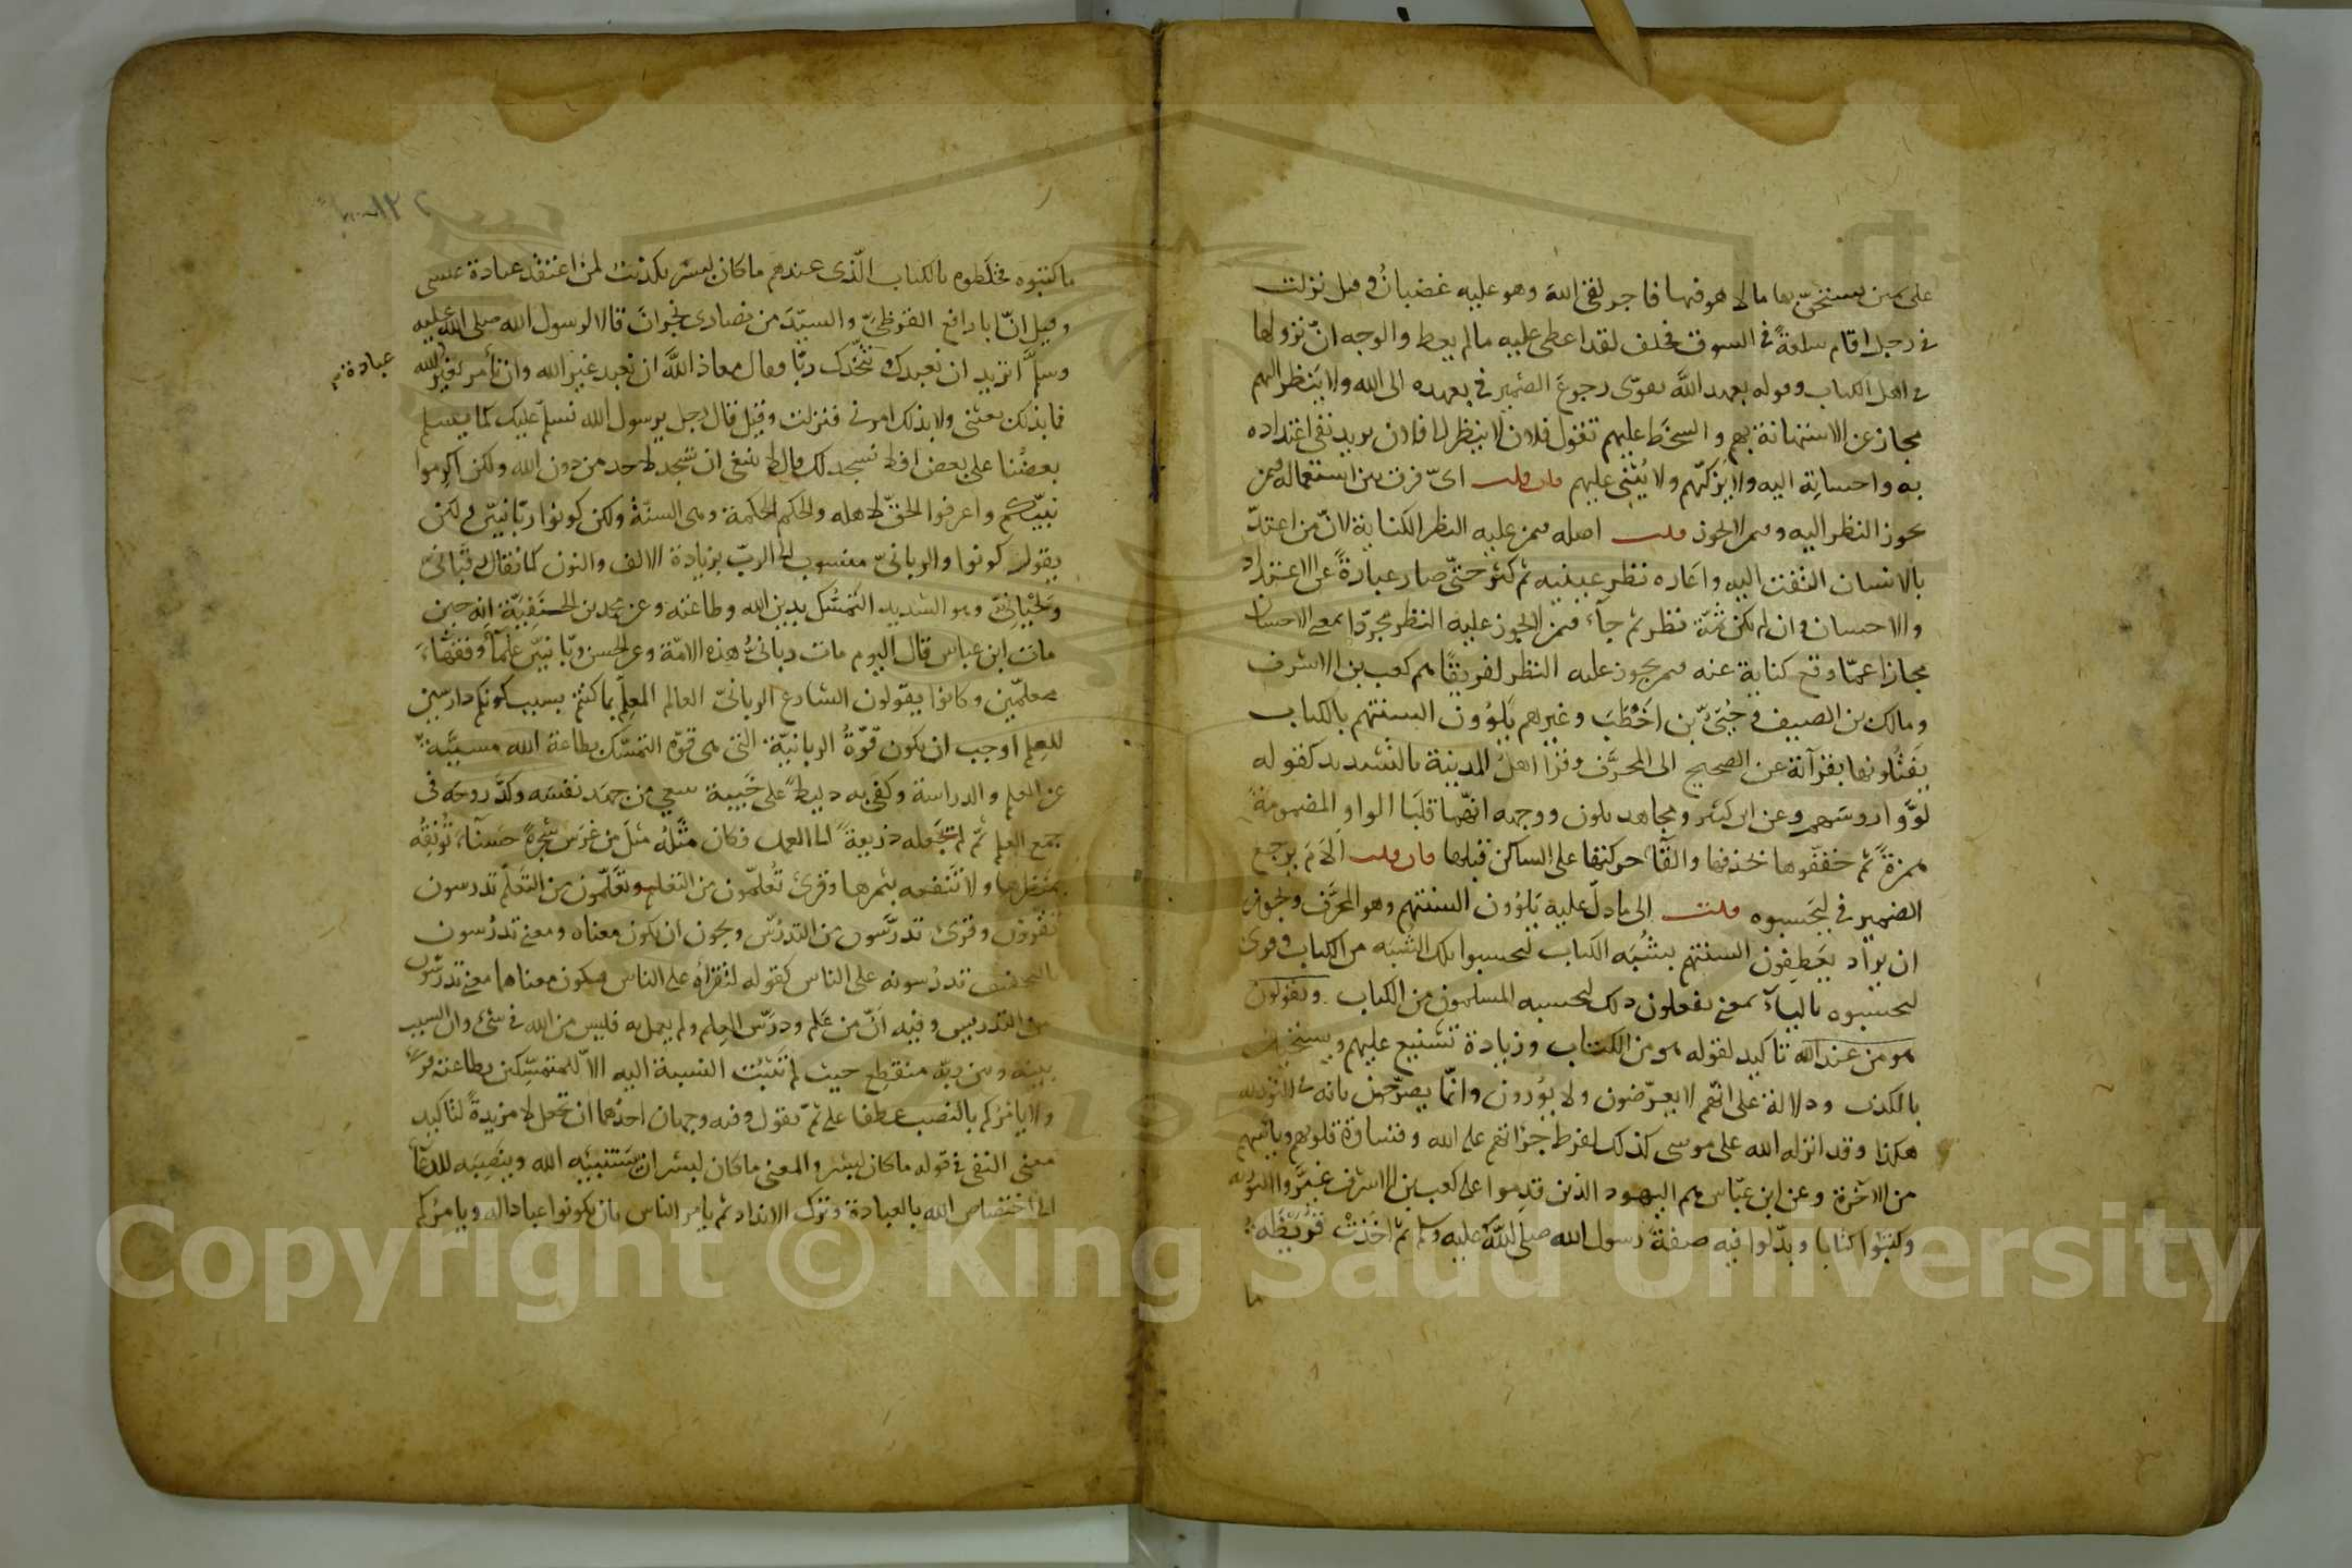 على يمين يستحق بها مالا هو فيها فاجر لقى الله وهو عليه غضبان وقيل نزلت
فى رجل اقام سلعة فى السوق فحلف لقد اعطى عليه ما لم يعط والوجه انّ نزولها
فى اهل الكتاب وقوله بعهد الله يقوّى رجوع الضمير فى بعهده الى الله ولا ينظر اليهم
مجاز عن الاستهانة بهم والسخط عليهم تقول فلان لا ينظر الى فلان يريد نفى اعتداده
به واحسانه اليه ولا يزكّيهم ولا يُثنى عليهم فان قلت اىّ فرق بين استعماله فيمن
يجوز النظر اليه وفيمن لا يجوز قلت اصله فيمن عليه النظر الكناية لانّ من اعتدّ
بالانسان التفت اليه واعاره نظر عينيه ثم كثر حتّى صار عبارةً عن الاعتداد
والاحسان وان لم يكن ثمّة نظر ثم جآء فيمن لا يجوز عليه النظر مجرّدا لمعنى الاحسان
مجازا عمّا وقع كناية عنه فيمن يجوز عليه النظر لفريقًا هم كعب بن الاشرف
ومالك بن الصيف وحُيَىّ بن اخطب وغيرهم يلوُون السنتهم بالكتاب
يفتلونها بقرآته عن الصحيح الى المحرّف وقرا اهل المدينة بالتشديد كقوله
لوّوا روسهم وعن ابن كثير ومجاهد يلون ووجهه انّهما قلبا الواو المضمومة
همزةً ثم خففوها بحذفها والقآء حركتها على الساكن قبلها فان قلت الام يرجع
الضمير فى ليحسبوه قلت الى ما دلّ عليه يلوُون السنتهم وهو المحرّف ويجوز
ان يراد يعطفون السنتهم بشُبه الكتاب لتحسبوا ذلك الشبه من الكتاب وقرى
ليحسبوه باليآء بمعنى يفعلون ذلك ليحسبه المسلمون من الكتاب ويقولون
هو من عند الله تاكيد لقوله هو من الكتاب وزيادة تشنيع عليهم وتسجيل
بالكذب ودلالة على انّهم لا يعرّضون ولا يورّون وانّما يصرّحون بانه فى التورية
هكذا وقد انزله الله على موسى كذلك لفرط جرأتهم على الله وقساوة قلوبهم وياسهم
من الآخرة وعن ابن عبّاس هم اليهود الذين قدموا على كعب بن الاشرف غيّروا التورية
وكتبوا كتابا وبدّلوا فيه صفة رسول الله صلى الله عليه وسلم ثم اخذت قُريظة
ما
ما كتبوه فخلطوه بالكتاب الّذى عندهم ما كان لبشر تكذيب لمن اعتقد عبادة عيسى
وقيل انّ ابا رافع القرظىّ والسيّد من نصارى نجران قالا لرسول الله صلى الله عليه
وسلّم اتريد ان نعبدك ونتخذك ربّا فقال معاذ الله ان نعبد غير الله وان نأمر بغير الله
عبادة
فما بذلك بعثنى ولا بذلك امرنى فنزلت وقيل قال رجل يرسول الله نسلم عليك كما يسلم
بعضنا على بعض افلا نسجد لك قال لا ينبغى ان يسجد لاحد من دون الله ولكن اكرموا
نبيّكم واعرفوا الحقّ لاهله والحكم الحكمة وهى السنّة ولكن كونوا ربّانيّين ولكن
يقول كونوا والربانىّ منسوب الى الربّ بزيادة الالف والنون كما يقال رقبانىّ
ولحيانىّ وهو الشديد التمسّك بدين الله وطاعته وعن محمد بن الحنفيّة انه حين
مات ابن عباس قال اليوم مات ربانىُّ هذه الامّة وعن الحسن ربّانيّين علمآء وفقهاء
معلمّين وكانوا يقولون الشارع الربانىّ العالم المعلّم بما كنتم بسبب كونكم دارسين
للعلم اوجب ان يكون قوّةُ الربانيّة التى هى قوّة التمسّك بطاعة الله مسبّبة
عن العلم والدراسة وكفى به دليلاً على خيبة سعى من جهد نفسه وكدّ روحه فى
جمع العلم ثمّ لم يجعله ذريعةً الى العمل فكان مثله مثل من غرس شجرةً حسنآء تونقه
بمنظرها ولا تنفعه بثمرها وقرئ تُعلّمون من التعليم وتعلّمون من التعلّم تدرسون
تقرؤن وقرئ تدرّسون من التدريس ويجوز ان يكون معناه ومعنى تدرُسون
بالتخفيف تدرُسونه على الناس كقوله لتقرأه على الناس فيكون معناها معنى تدرّسون
من التدريس وفيه انّ من علم ودرّس العلم ولم يعمل به فليس من الله فى شئ وان السبب
بينه وبين ربّه منقطع حيث لم تثبت النسبة اليه الّا للمتمسّكين بطاعته وقرئ
ولا يامُرَكم بالنصب عطفا على ثمّ يقول وفيه وجهان احدهما ان تجعل لا مزيدةً لتاكيد
معنى النفى فى قوله ما كان لبشر والمعنى ما كان لبشر ان يستنبئه الله وينصبه للدعآء
الى اختصاص الله بالعبادة وترك الانداد ثم يامر الناس بان يكونوا عبادا له ويامركم
Copyright © King Saud University